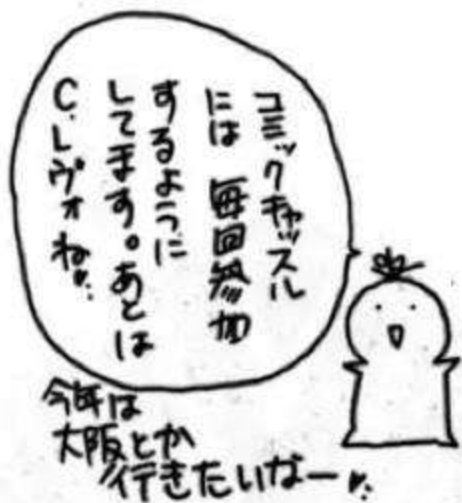 コミックキャッスル
には 毎回参加
するように
してます。あとは
C.レヴォね!!
今年は
大阪とか
行きたいなー!!